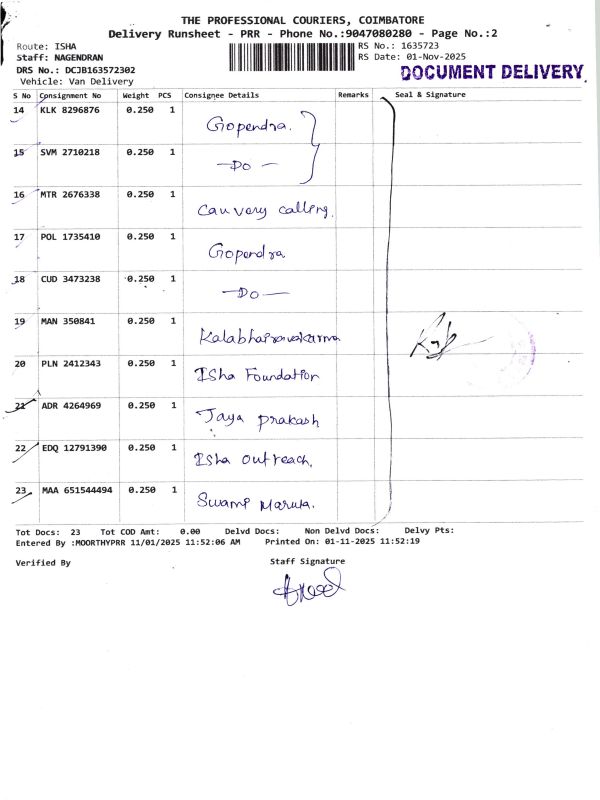 THE PROFESSIONAL COURIERS, COIMBATORE
Delivery Runsheet - PRR - Phone No.:9047080280 - Page No.:2
Route: ISHA
RS No.: 1635723
Staff: NAGENDRAN
RS Date: 01-Nov-2025
DRS No.: DCJB163572302
DOCUMENT DELIVERY
Vehicle: Van Delivery
S No Consignment No Weight PCS Consignee Details Remarks Seal & Signature
14 KLK 8296876 0.250 1 Gopendra.
15 SVM 2710218 0.250 1 -Do-
16 MTR 2676338 0.250 1 Cauvery calling.
17 POL 1735410 0.250 1 Gopendra
18 CUD 3473238 0.250 1 -Do-
19 MAN 350841 0.250 1
20 PLN 2412343 0.250 1 Isha Foundation
21 ADR 4264969 0.250 1 Jaya prakash
22 EDQ 12791390 0.250 1 Isha outreach.
23 MAA 651544494 0.250 1 Swami
Tot Docs: 23 Tot COD Amt: 0.00 Delvd Docs: Non Delvd Docs: Delvy Pts:
Entered By :MOORTHYPRR 11/01/2025 11:52:06 AM Printed On: 01-11-2025 11:52:19
Verified By
Staff Signature